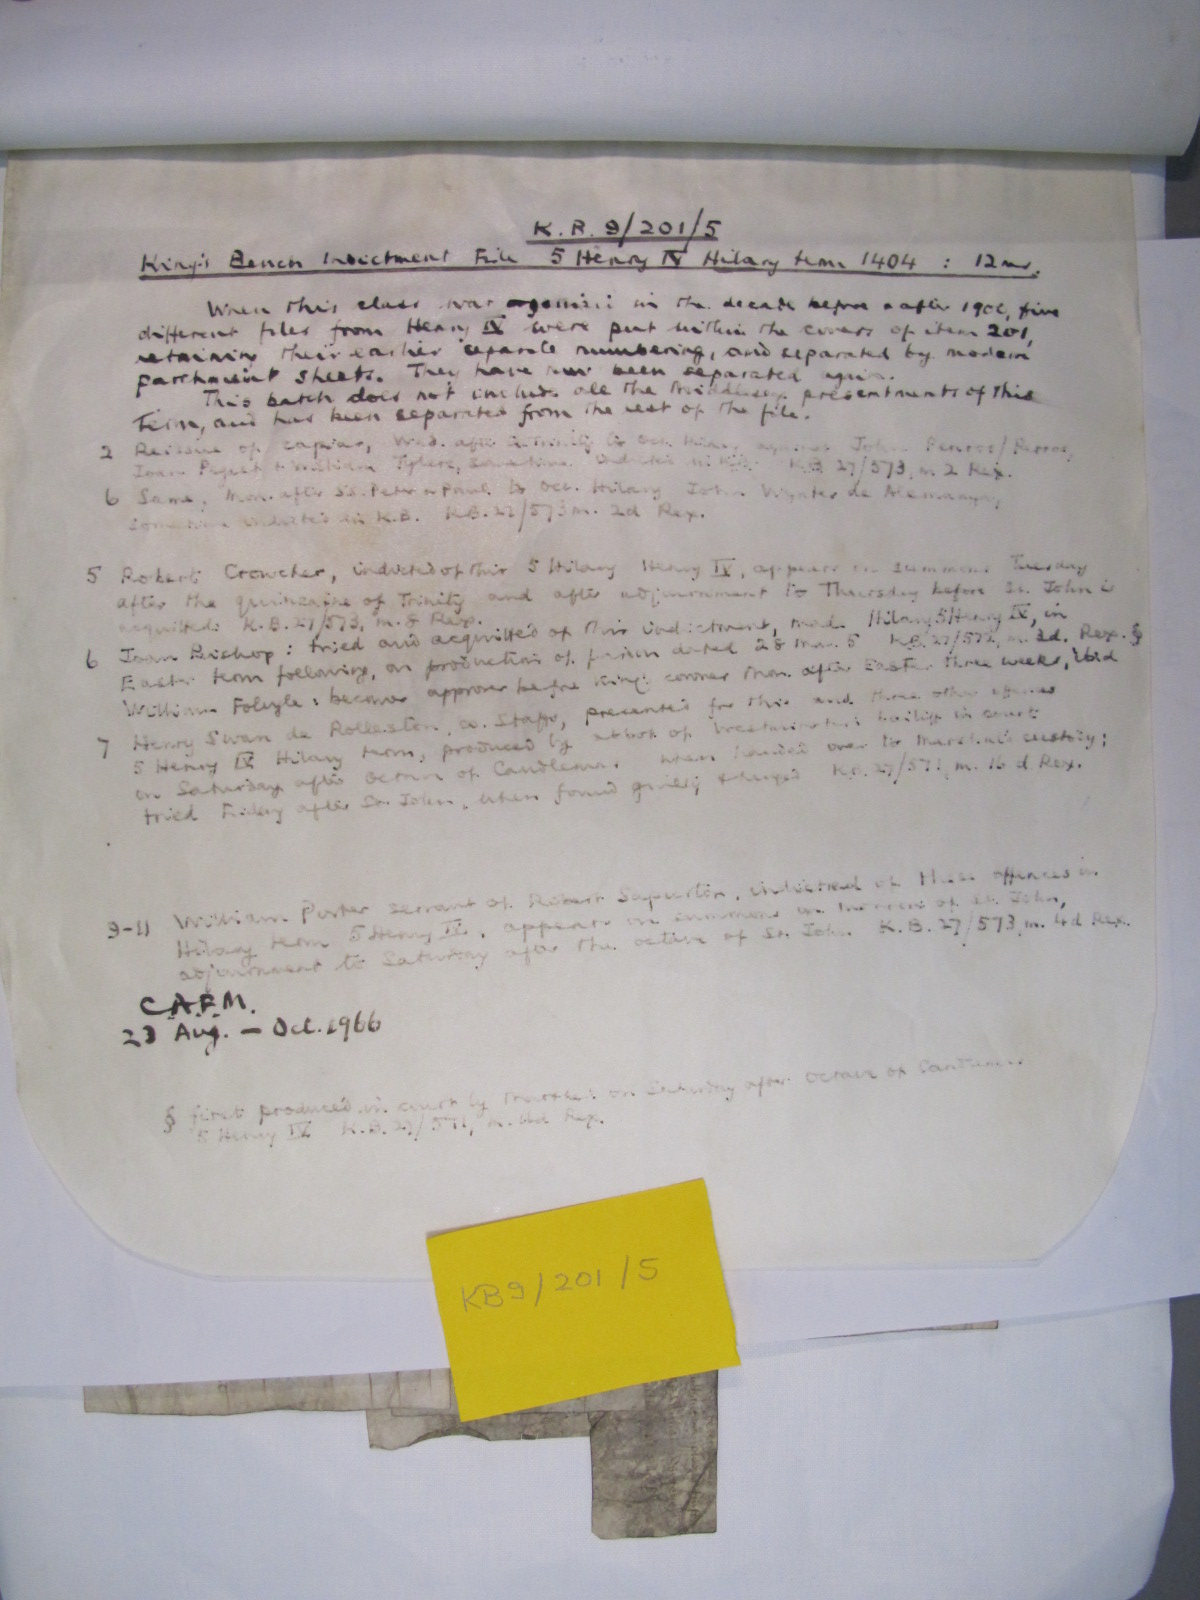 K.B. 9/201/5
King's Bench Indictment File 5 Henry IV Hilary term 1404 : 12 ms.
When this class was in the decade before & after 1900, five
different files from Henry IV were put within the covers of item 201,
retaining their earlier separate numbering, and separated by modern
parchment sheets. They have now been separated again.
This batch does not include all the Middlesex presentments of this
Term, and has been separated from the rest of the file.
2 Reissue of capias, Wed. after Trinity to Oct. Hilary against John Penros/Perros,
Joan Piggot & William sometime indicted in K.B. K.B. 27/573, m. 2 Rex.
6 Same, Mon. after SS. Peter & Paul to Oct. Hilary John de Alemannya,
sometime indicted in K.B. K.B. 27/573 m. 2d Rex.
5 Robert Crowcher, indicted of this 5 Hilary Henry IV, appears on summons Tuesday
after the quinzaine of Trinity and after adjournment to Thursday before St. John is
acquitted: K.B. 27/573, m. 8 Rex.
6 Joan Bishop: tried and acquitted of this indictment, made Hilary 5 Henry IV, in
Easter term following, on production of pardon dated 28 Mar. 5 K.B. 27/572, m. 3d. Rex. §
William Folvyle: becomes approver before King's coroner Mon. after Easter three weeks, ibid
7 Henry Swan de Rolleston, co. Staffs, presented for this and three other offences
5 Henry IV Hilary term, produced by abbot of Westminster's bailiff in court
on Saturday after octave of Candlemas when handed over to Marshal's custody;
tried Friday after St. John, when found guilty & hanged K.B. 27/571, m. 16 d. Rex.
9-11 William Porter servant of Robert indicted of these offences in
Hilary term 5 Henry IV, appears on summons in of St. John,
adjournment to Saturday after the octave of St. John K.B. 27/573, m. 4d Rex.
C.A.F.M.
23 Aug. — Oct. 1966
§ first produced in court by on Saturday after octave of Candlemas
5 Henry IV K.B. 27/571, m. Rex.
KB9/201/5